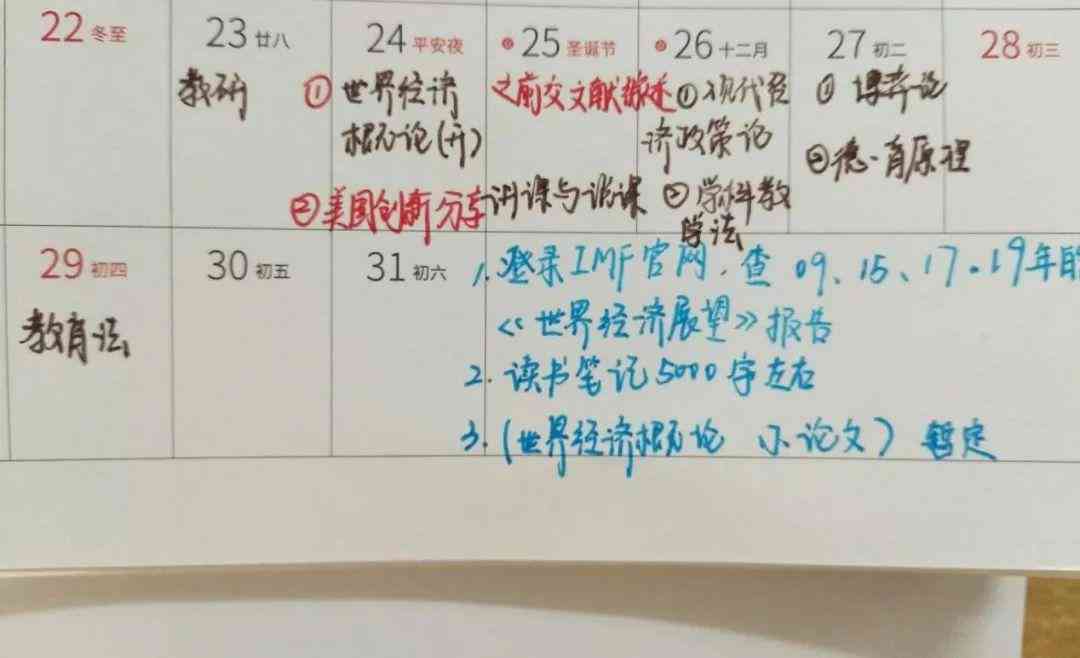 22 冬至
23 廿八
24 平安夜
25 圣诞节
26 十二月
27 初二
28 初三
教研
① 世界经济
概论(开)
② 美国创新分享
之前交文献综述
讲课与说课
① 现代经
济政策论
② 学科教
学法
① 博弈论
② 德育原理
29 初四
30 初五
31 初六
教育法
1. 登录IMF官网,查 09、15、17、19年的
《世界经济展望》报告
2. 读书笔记5000字左右
3. (世界经济概论 小论文) 暂定